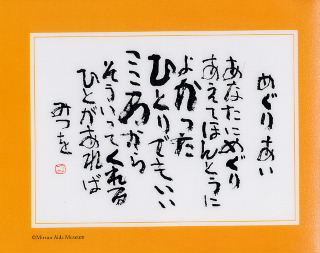 めぐりあい
あなたにめぐり
あえてほんとうに
よかった
ひとりでもいい
こころから
そういってくれる
ひとがあれば
みつを
©Mitsuo Aida Museum